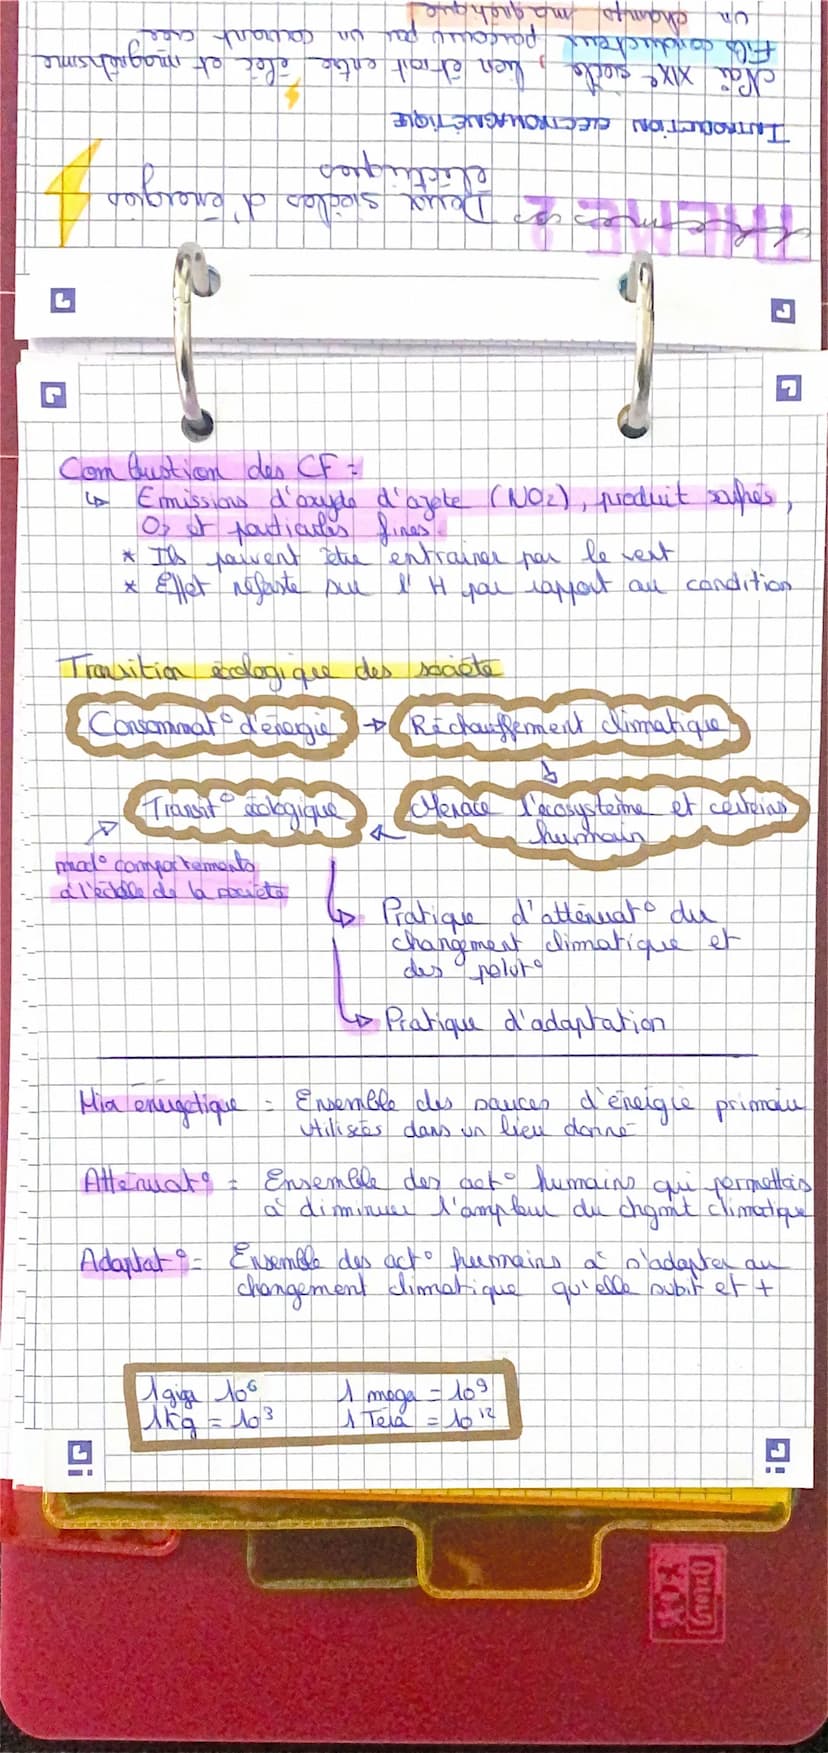 THEME 2 Deux siècles d'énergies
électriques
INTRODUCTION ELECTROMAGNÉTIQUE
Née XIXe siècle, lien étroit entre élec et magnétisme
Fils conducteur parcouru par un courant crée
un champs magnétique
Combustion des CF =
↳ Emissions d'oxyde d'azote (NO2), produit soufrés,
O3 et particules fines.
* Ils peuvent être entrainer par le vent
* Effet néfaste sur l'H par rapport au condition
Transition écologique des société
Consommat° d'énergie → Réchauffement climatique
Transit° écologique ← Menace l'écosystème et certains
humain
mod° comportements
à l'échelle de la société
Pratique d'atténuat° du
changement climatique et
des polut°
Pratique d'adaptation
Mix énergétique = Ensemble des sources d'énergie primaire
utilisés dans un lieu donné
Atténuat° = Ensemble des act° humains qui permettais
à diminuer l'ampleur du chgmt climatique
Adaptat° = Ensemble des act° humains à s'adapter au
changement climatique qu'elle subit et +
1 giga 10⁶ 1 mega = 10⁹
1 Kg = 10³ 1 Téra = 10¹²